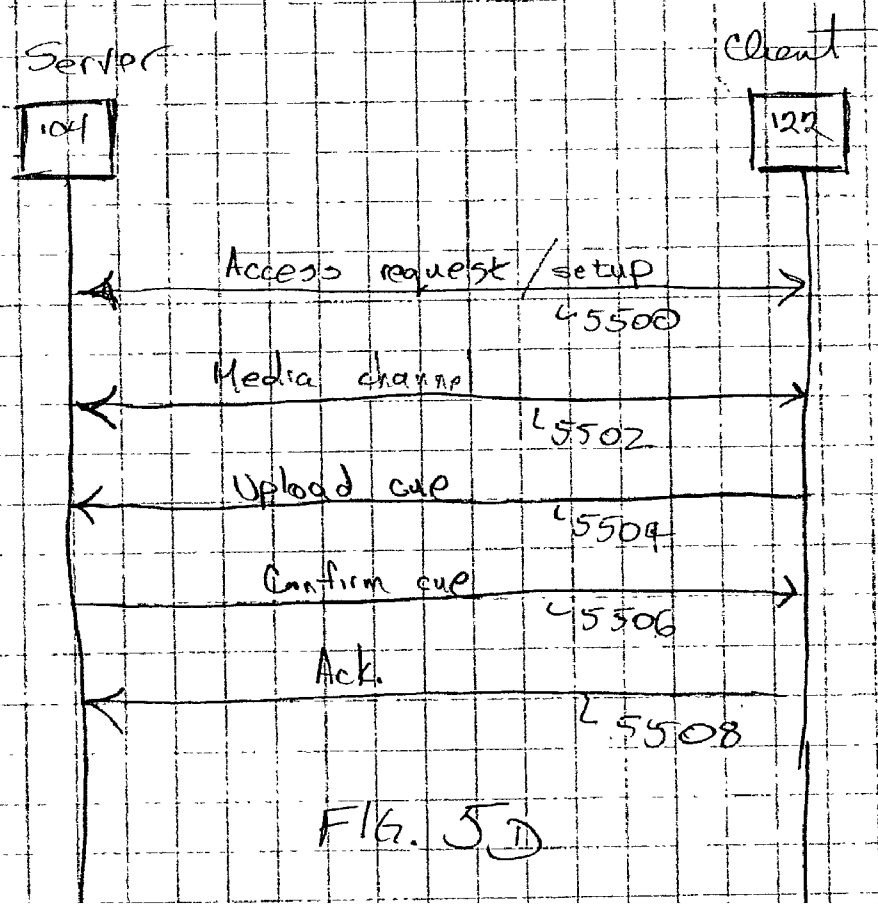 Server
Client
104
122
Access request/setup
5500
Media channel
5502
Upload cue
5504
Confirm cue
5506
Ack.
5508
FIG. 5D